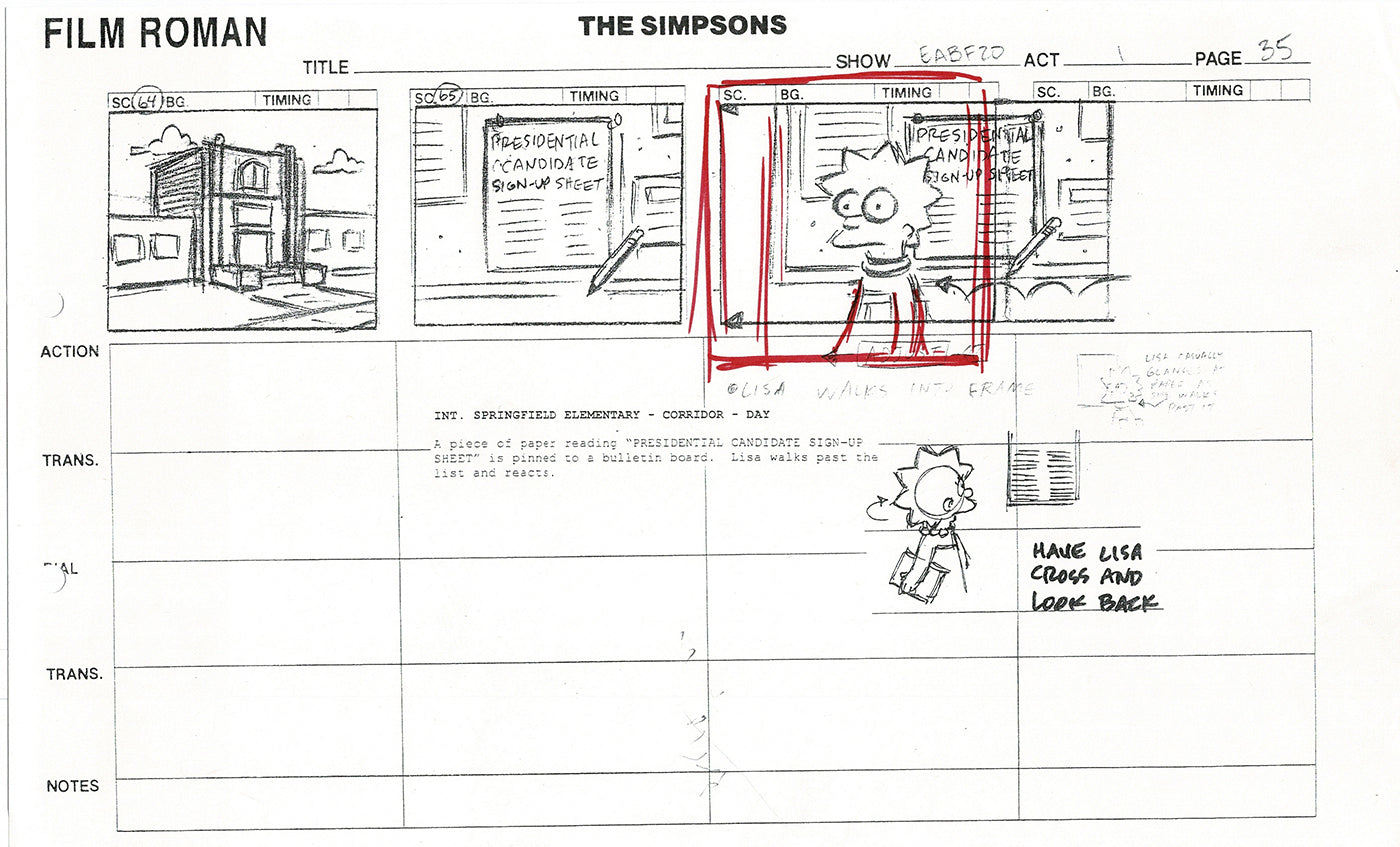 FILM ROMAN
THE SIMPSONS
TITLE
SHOW EABF20 ACT 1 PAGE 35
SC. 64 BG. TIMING
SC. 65 BG. TIMING
SC. BG. TIMING
SC. BG. TIMING
PRESIDENTIAL
CANDIDATE
SIGN-UP SHEET
PRESIDENTIAL
CANDIDATE
SIGN-UP SHEET
ACTION
LISA WALKS INTO FRAME
LISA CASUALLY
GLANCES AT
PAPER AS
SHE WALKS
PAST IT
INT. SPRINGFIELD ELEMENTARY - CORRIDOR - DAY
A piece of paper reading "PRESIDENTIAL CANDIDATE SIGN-UP
SHEET" is pinned to a bulletin board. Lisa walks past the
list and reacts.
TRANS.
HAVE LISA
CROSS AND
LOOK BACK
TRANS.
NOTES